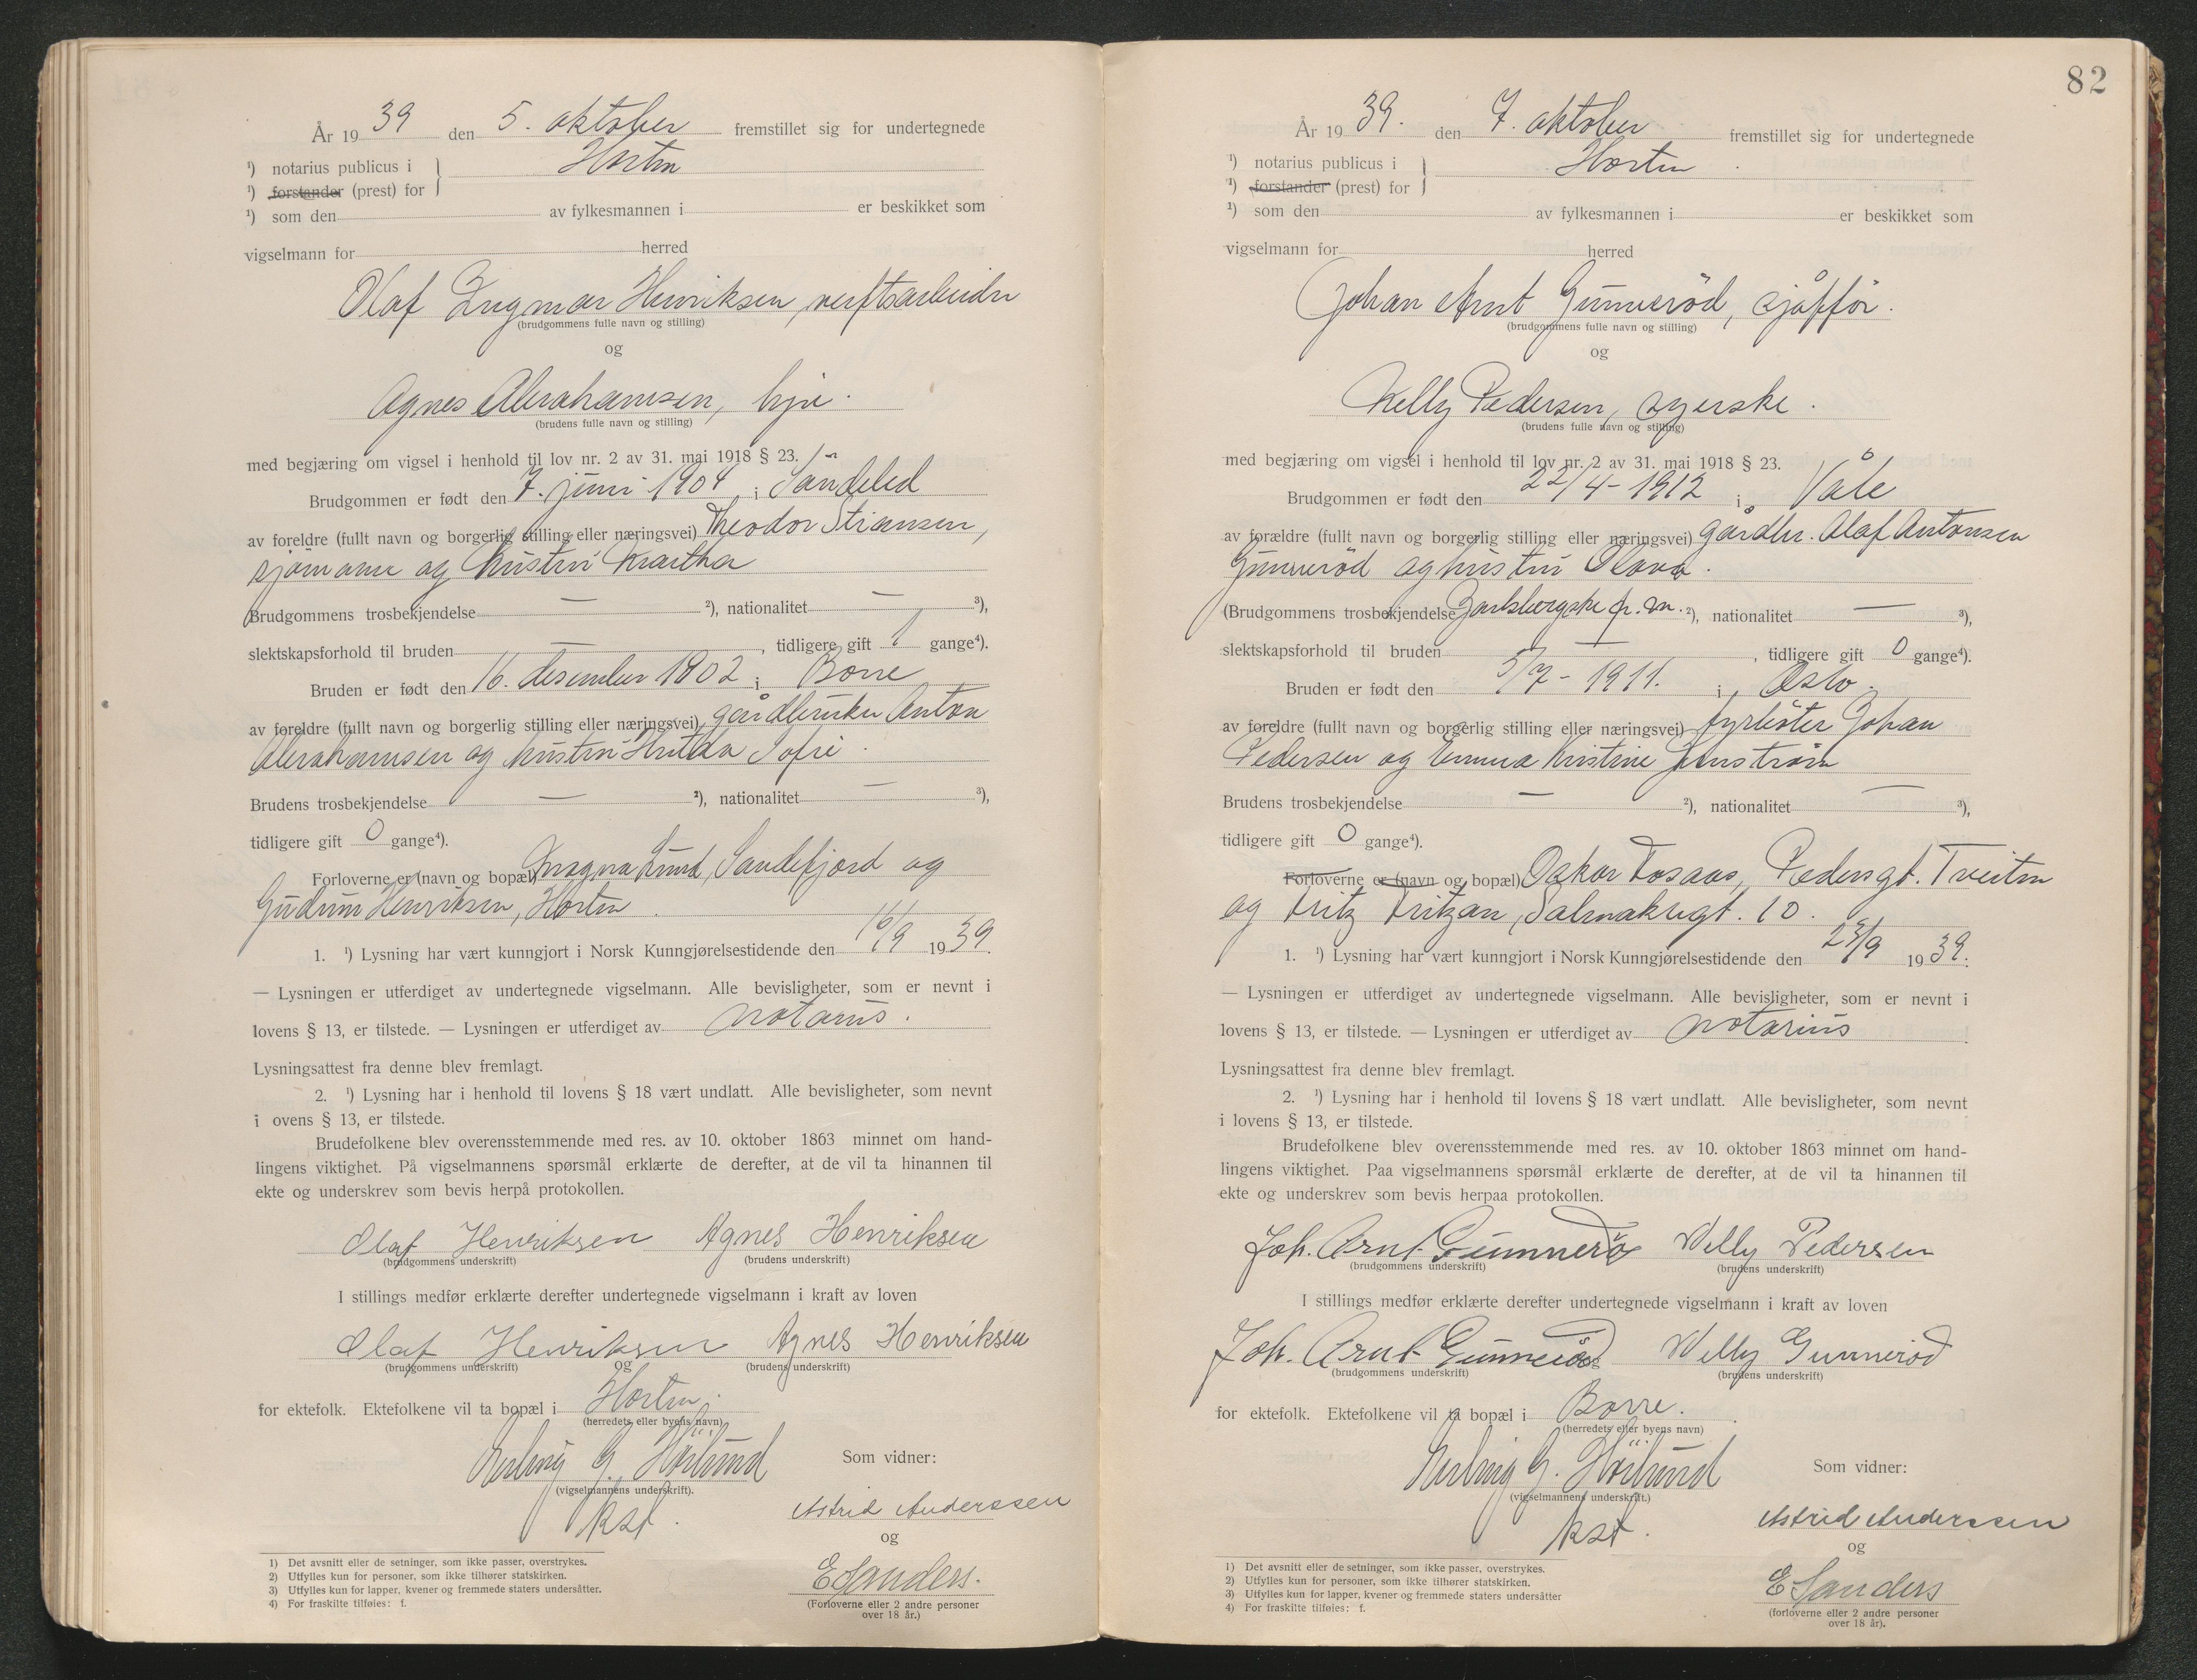 År 19 39 den 5. oktober fremstillet sig for undertegnede
¹) notarius publicus i
Horten
¹) forstander (prest) for
¹) som den av fylkesmannen i er beskikket som
vigselmann for herred
Olaf Ingmar Henriksen, verftsarbeider
(brudgommens fulle navn og stilling)
og
Agnes Abrahamsen, hjv.
(brudens fulle navn og stilling)
med begjæring om vigsel i henhold til lov nr. 2 av 31. mai 1918 § 23.
Brudgommen er født den 7. juni 1904 i Söndeled
av foreldre (fullt navn og borgerlig stilling eller næringsvei) Theodor Stiansen,
sjömann og hustru Martha
Brudgommens trosbekjendelse — ²), nationalitet — ³),
slektskapsforhold til bruden — , tidligere gift 1 gange⁴).
Bruden er født den 16. desember 1902 i Borre
av foreldre (fullt navn og borgerlig stilling eller næringsvei) gårdbruker Anton
Abrahamsen og hustru Hulda Sofie.
Brudens trosbekjendelse — ²), nationalitet — ³),
tidligere gift 0 gange⁴).
Forloverne er (navn og bopæl) Magna Lund, Sandefjord og
Gudrun Henriksen, Horten.
1. ¹) Lysning har vært kunngjort i Norsk Kunngjørelsestidende den 16/9 19 39.
— Lysningen er utferdiget av undertegnede vigselmann. Alle bevisligheter, som er nevnt i
lovens § 13, er tilstede. — Lysningen er utferdiget av notarius.
Lysningsattest fra denne blev fremlagt.
2. ¹) Lysning har i henhold til lovens § 18 vært undlatt. Alle bevisligheter, som nevnt
i ovens § 13, er tilstede.
Brudefolkene blev overensstemmende med res. av 10. oktober 1863 minnet om hand-
lingens viktighet. På vigselmannens spørsmål erklærte de derefter, at de vil ta hinannen til
ekte og underskrev som bevis herpå protokollen.
Olaf Henriksen Agnes Henriksen
(brudgommens underskrift) (brudens underskrift)
I stillings medfør erklærte derefter undertegnede vigselmann i kraft av loven
Olaf Henriksen Agnes Henriksen
(brudgommens underskrift) og (brudens underskrift)
for ektefolk. Ektefolkene vil ta bopæl i Horten.
(herredets eller byens navn)
Erling G. Höilund
Som vidner:
(vigselmannens underskrift).
kst.
Astrid Anderssen
og
E Sanders.
(Forloverne eller 2 andre personer
over 18 år.)
1) Det avsnitt eller de setninger, som ikke passer, overstrykes.
2) Utfylles kun for personer, som ikke tilhører statskirken.
3) Utfylles kun for lapper, kvener og fremmede staters undersåtter.
4) For fraskilte tilføies: f.
82
År 19 39. den 7. oktober fremstillet sig for undertegnede
¹) notarius publicus i
Horten.
¹) forstander (prest) for
¹) som den av fylkesmannen i er beskikket som
vigselmann for herred
Johan Arnt Gunnerød, sjåfför.
(brudgommens fulle navn og stilling)
og
Nelly Pedersen, syerske.
(brudens fulle navn og stilling)
med begjæring om vigsel i henhold til lov nr. 2 av 31. mai 1918 § 23.
Brudgommen er født den 22/4-1912 i Våle
av forældre (fullt navn og borgerlig stilling eller næringsvei) gårdbr. Olaf Antonsen
Gunnerød og hustru Olava.
(Brudgommens trosbekjendelse Jarlsbergske fr. m. ²), nationalitet — ³),
slektskapsforhold til bruden — , tidligere gift 0 gange⁴).
Bruden er født den 5/7-1911. i Oslo.
av foreldre (fullt navn og borgerlig stilling eller næringsvei) fyrbøter Johan
Pedersen og Emma Kristine
Brudens trosbekjendelse — ²), nationalitet — ³),
tidligere gift 0 gange⁴).
Forloverne er (navn og bopæl) Oskar Fosaas, Pedersgt. Tveiten
og Fritz Fritzan, 10.
1. ¹) Lysning har vært kunngjort i Norsk Kunngjørelsestidende den 23/9 19 39.
— Lysningen er utferdiget av undertegnede vigselmann. Alle bevisligheter, som er nevnt i
lovens § 13, er tilstede. — Lysningen er utferdiget av notarius
Lysningsattest fra denne blev fremlagt.
2. ¹) Lysning har i henhold til lovens § 18 vært undlatt. Alle bevisligheter, som nevnt
i lovens § 13, er tilstede.
Brudefolkene blev overensstemmende med res. av 10. oktober 1863 minnet om hand-
lingens viktighet. Paa vigselmannens spørsmål erklærte de derefter, at de vil ta hinannen til
ekte og underskrev som bevis herpaa protokollen.
Joh. Arnt Gunnerød Nelly Pedersen
(brudgommens underskrift) (brudens underskrift)
I stillings medfør erklærte derefter undertegnede vigselmann i kraft av loven
Joh. Arnt Gunnerød og Nelly Gunnerød
(brudgommens underskrift) (brudens underskrift)
for ektefolk. Ektefolkene vil ta bopæl i Borre.
(herredets eller byens navn)
Erling G. Höilund
Som vidner:
(vigselmannens underskrift.)
kst.
Astrid Anderssen
og
E Sanders
(forloverne eller 2 andre personer
over 18 år).
1) Det avsnitt eller de setninger, som ikke passer, overstrykes.
2) Utfylles kun for personer, som ikke tilhører statskirken.
3) Utfylles kun for lapper, kvener og fremmede staters undersåtter
4) For fraskilte tilføies: f.